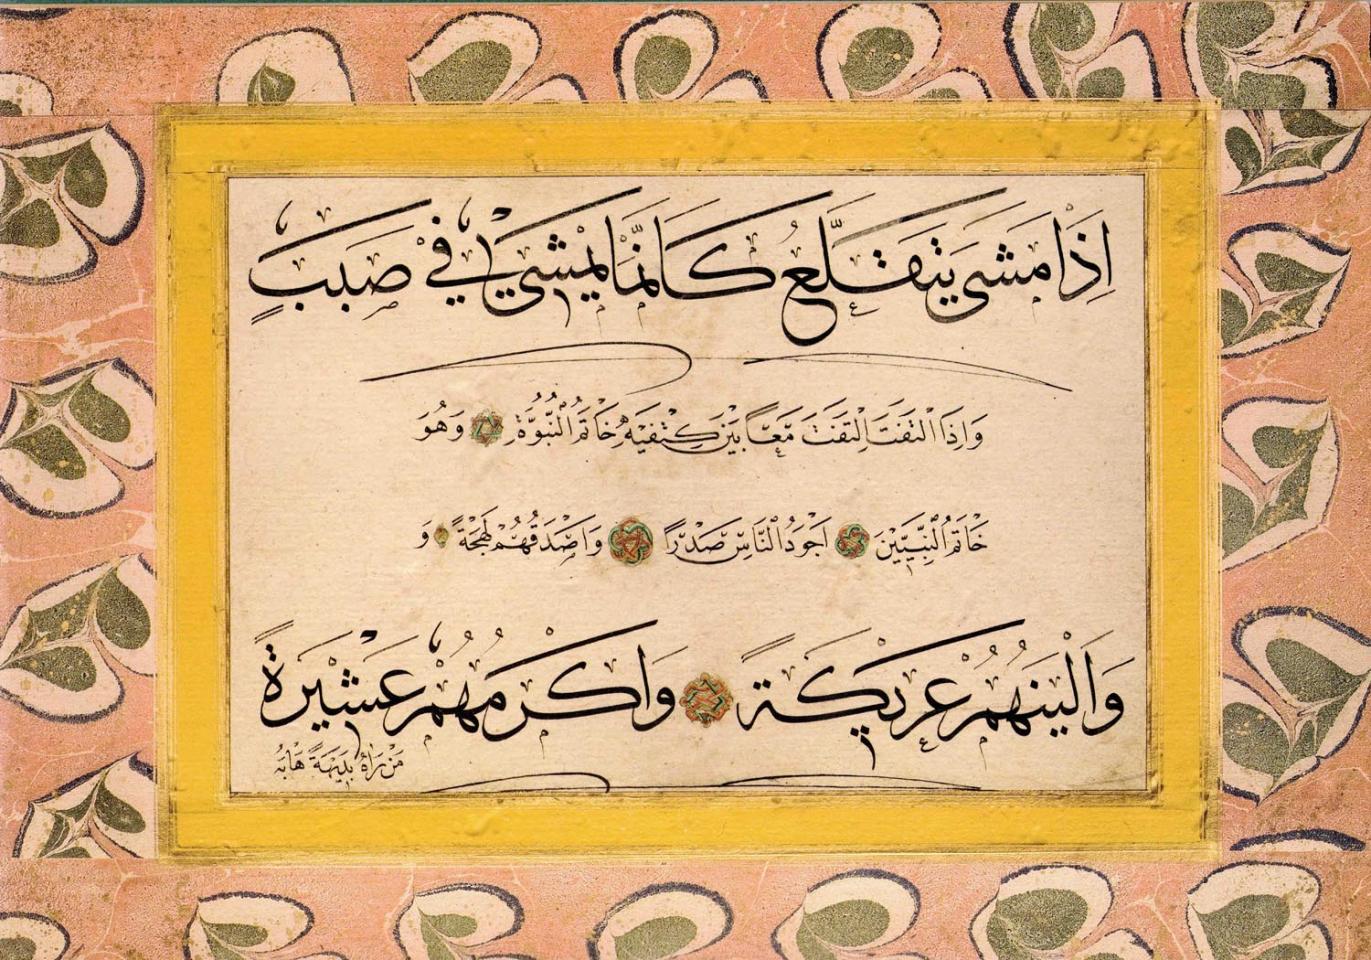 اِذَا مَشٰى يَتَقَلَّعُ كَاَنَّمَا يَمْشٖي فٖي صَبَبٍ
وَاِذَا الْتَفَتَ اِلْتَفَتَ مَعًا بَيْنَ كِتْفَيْهِ خَاتَمُ النُّبُوَّةِ وَهُوَ
خَاتَمُ النَّبِيّٖينَ اَجْوَدُ النَّاسِ صَدْرًا وَاَصْدَقُهُمْ لَهْجَةً وَ
وَاَلْيَنُهُمْ عَرٖيكَةً وَاَكْرَمُهُمْ عَشٖيرَةً
مَنْ رَاٰهُ بَدٖيهَةً هَابَهُ